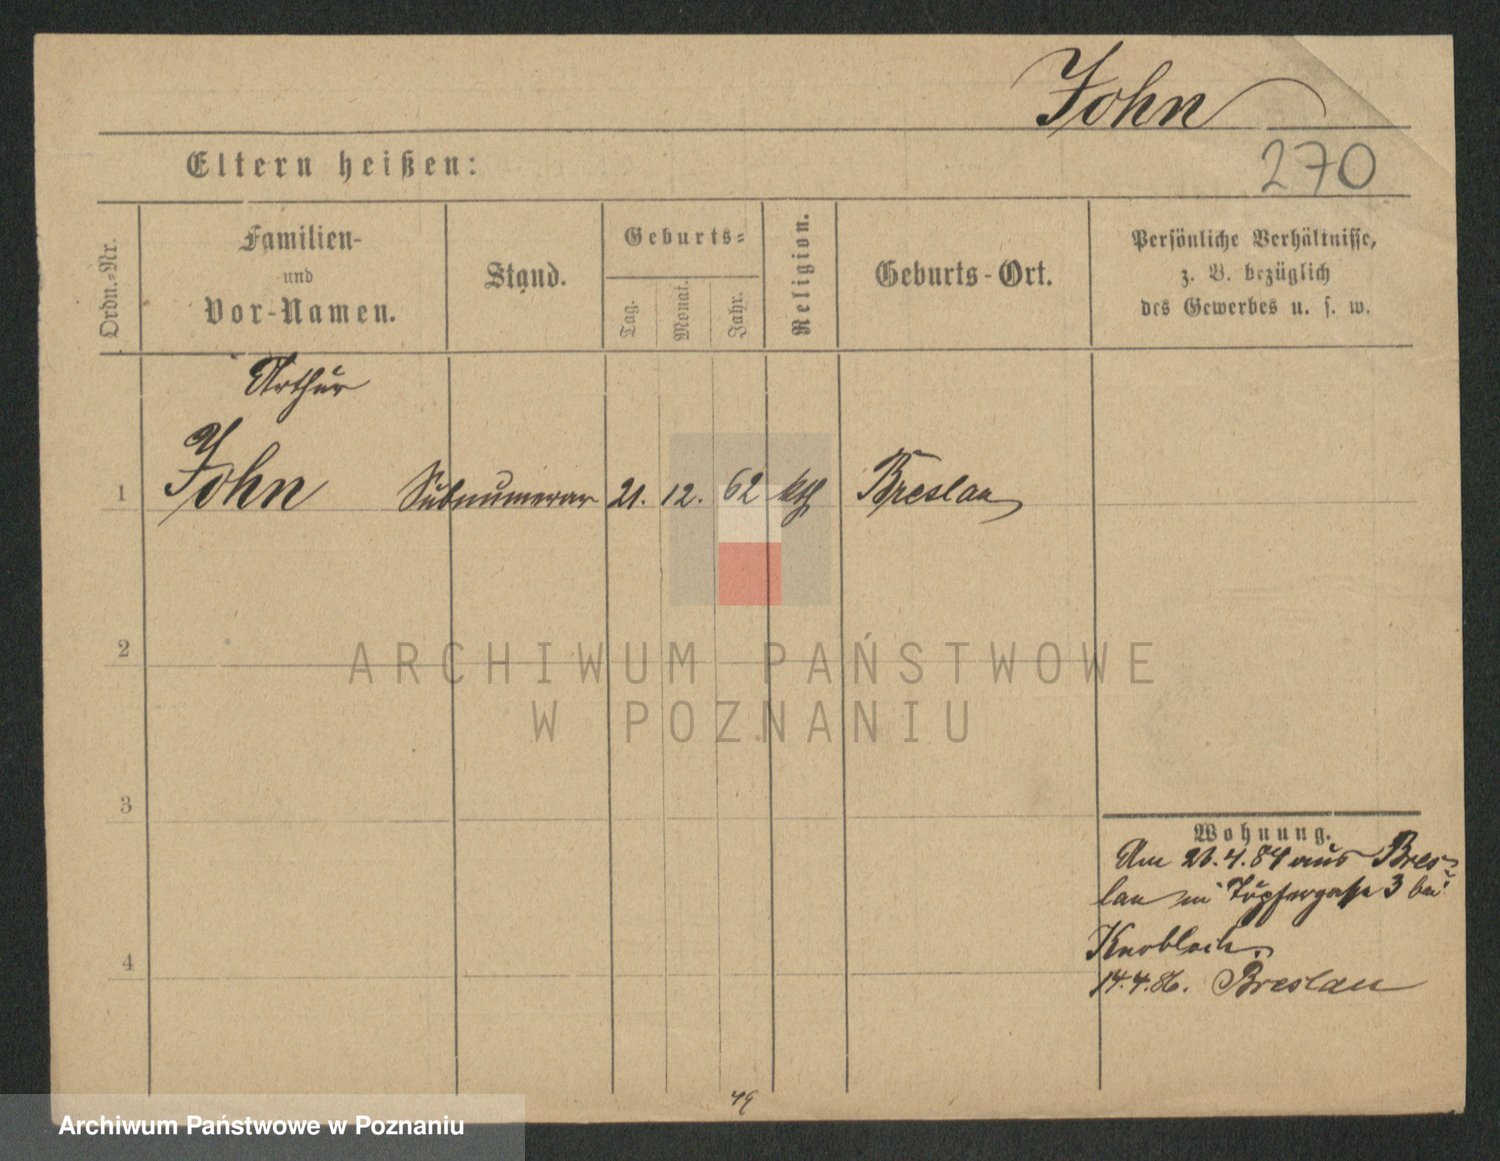 John
270
Eltern heißen:
Ordn.-Nr.
Familien-
und
Vor-Namen.
Stand.
Geburts-
Tag.
Monat.
Jahr.
Religion.
Geburts-Ort.
Persönliche Verhältnisse,
z. B. bezüglich
des Gewerbes u. s. w.
Arthur
1 John Subnumerar 21. 12. 62 kth Breslau
2
ARCHIWUM PAŃSTWOWE
W POZNANIU
3
Wohnung.
Am 4.84 aus Bres-
lau Töpfergasse 3 bei
Knobloch.
4
14.4.86. Breslau
Archiwum Państwowe w Poznaniu